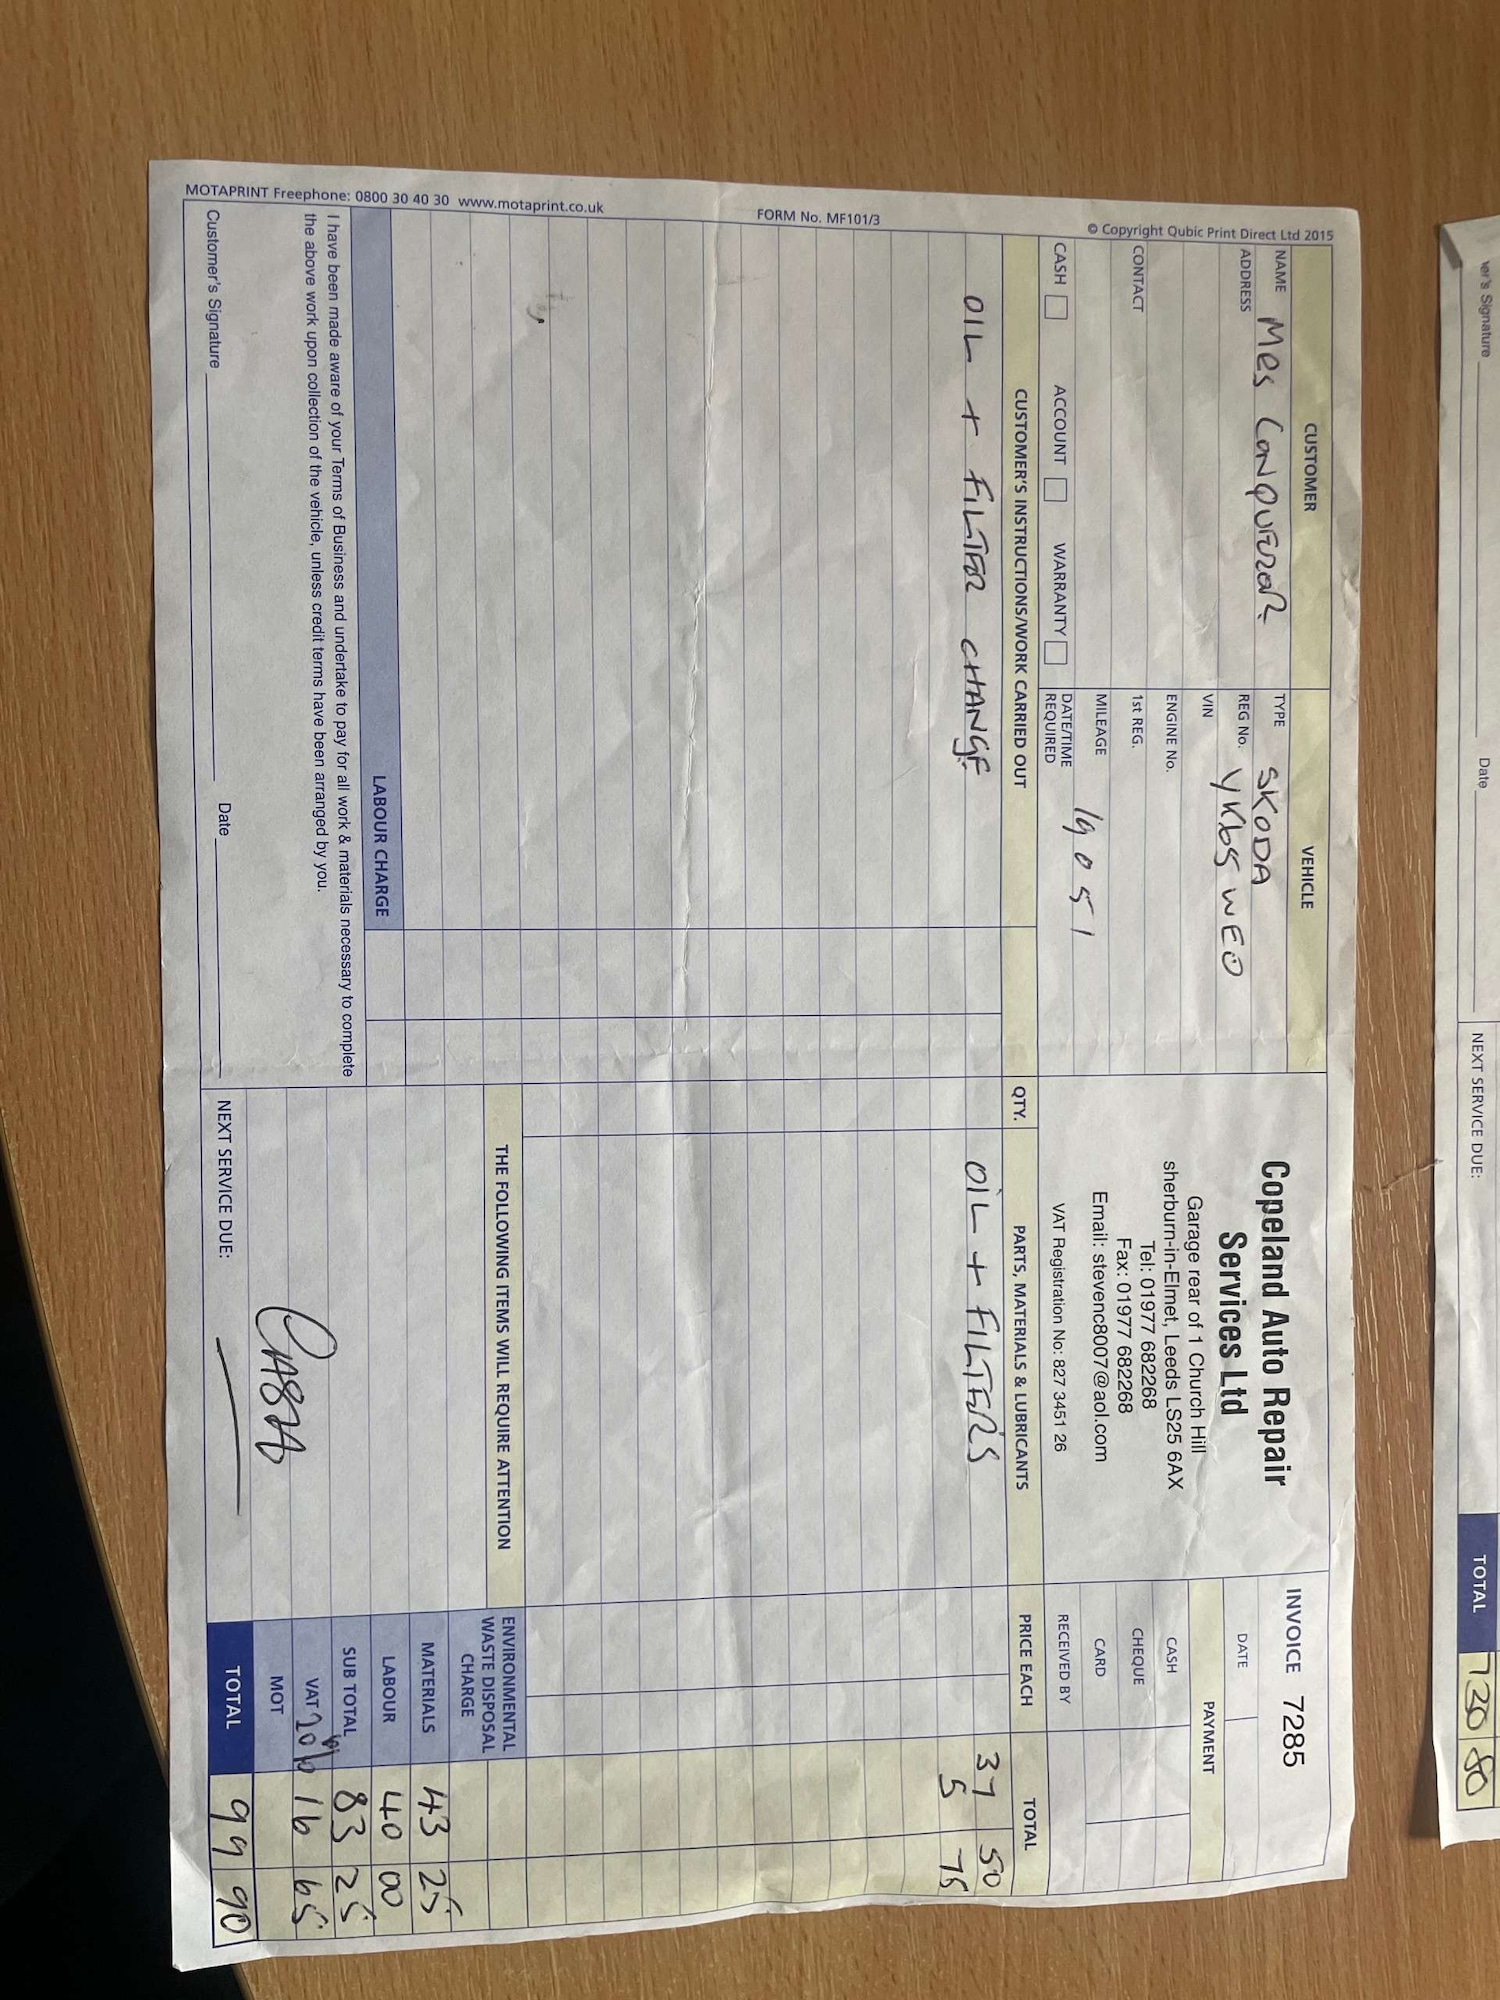 CUSTOMER
NAME Mrs CONQUEROR
ADDRESS
CONTACT
CASH ACCOUNT WARRANTY
VEHICLE
TYPE SKODA
REG No. YK65 WEO
VIN
ENGINE No.
1st REG.
MILEAGE 19051
DATE/TIME REQUIRED
Copeland Auto Repair
Services Ltd
Garage rear of 1 Church Hill
sherburn-in-Elmet, Leeds LS25 6AX
Tel: 01977 682268
Fax: 01977 682268
Email: stevenc8007@aol.com
VAT Registration No: 827 3451 26
INVOICE 7285
DATE
PAYMENT
CASH
CHEQUE
CARD
RECEIVED BY
CUSTOMER'S INSTRUCTIONS/WORK CARRIED OUT
OIL + FILTER CHANGE
QTY. PARTS, MATERIALS & LUBRICANTS PRICE EACH TOTAL
OIL + FILTERS 37 50
5 75
THE FOLLOWING ITEMS WILL REQUIRE ATTENTION
ENVIRONMENTAL
WASTE DISPOSAL
CHARGE
MATERIALS 43 25
LABOUR 40 00
SUB TOTAL 83 25
VAT 20% 16 65
MOT
TOTAL 99 90
LABOUR CHARGE
I have been made aware of your Terms of Business and undertake to pay for all work & materials necessary to complete
the above work upon collection of the vehicle, unless credit terms have been arranged by you.
Customer's Signature Date
NEXT SERVICE DUE:
MOTAPRINT Freephone: 0800 30 40 30 www.motaprint.co.uk
FORM No. MF101/3
© Copyright Qubic Print Direct Ltd 2015
Signature Date
NEXT SERVICE DUE:
TOTAL 80